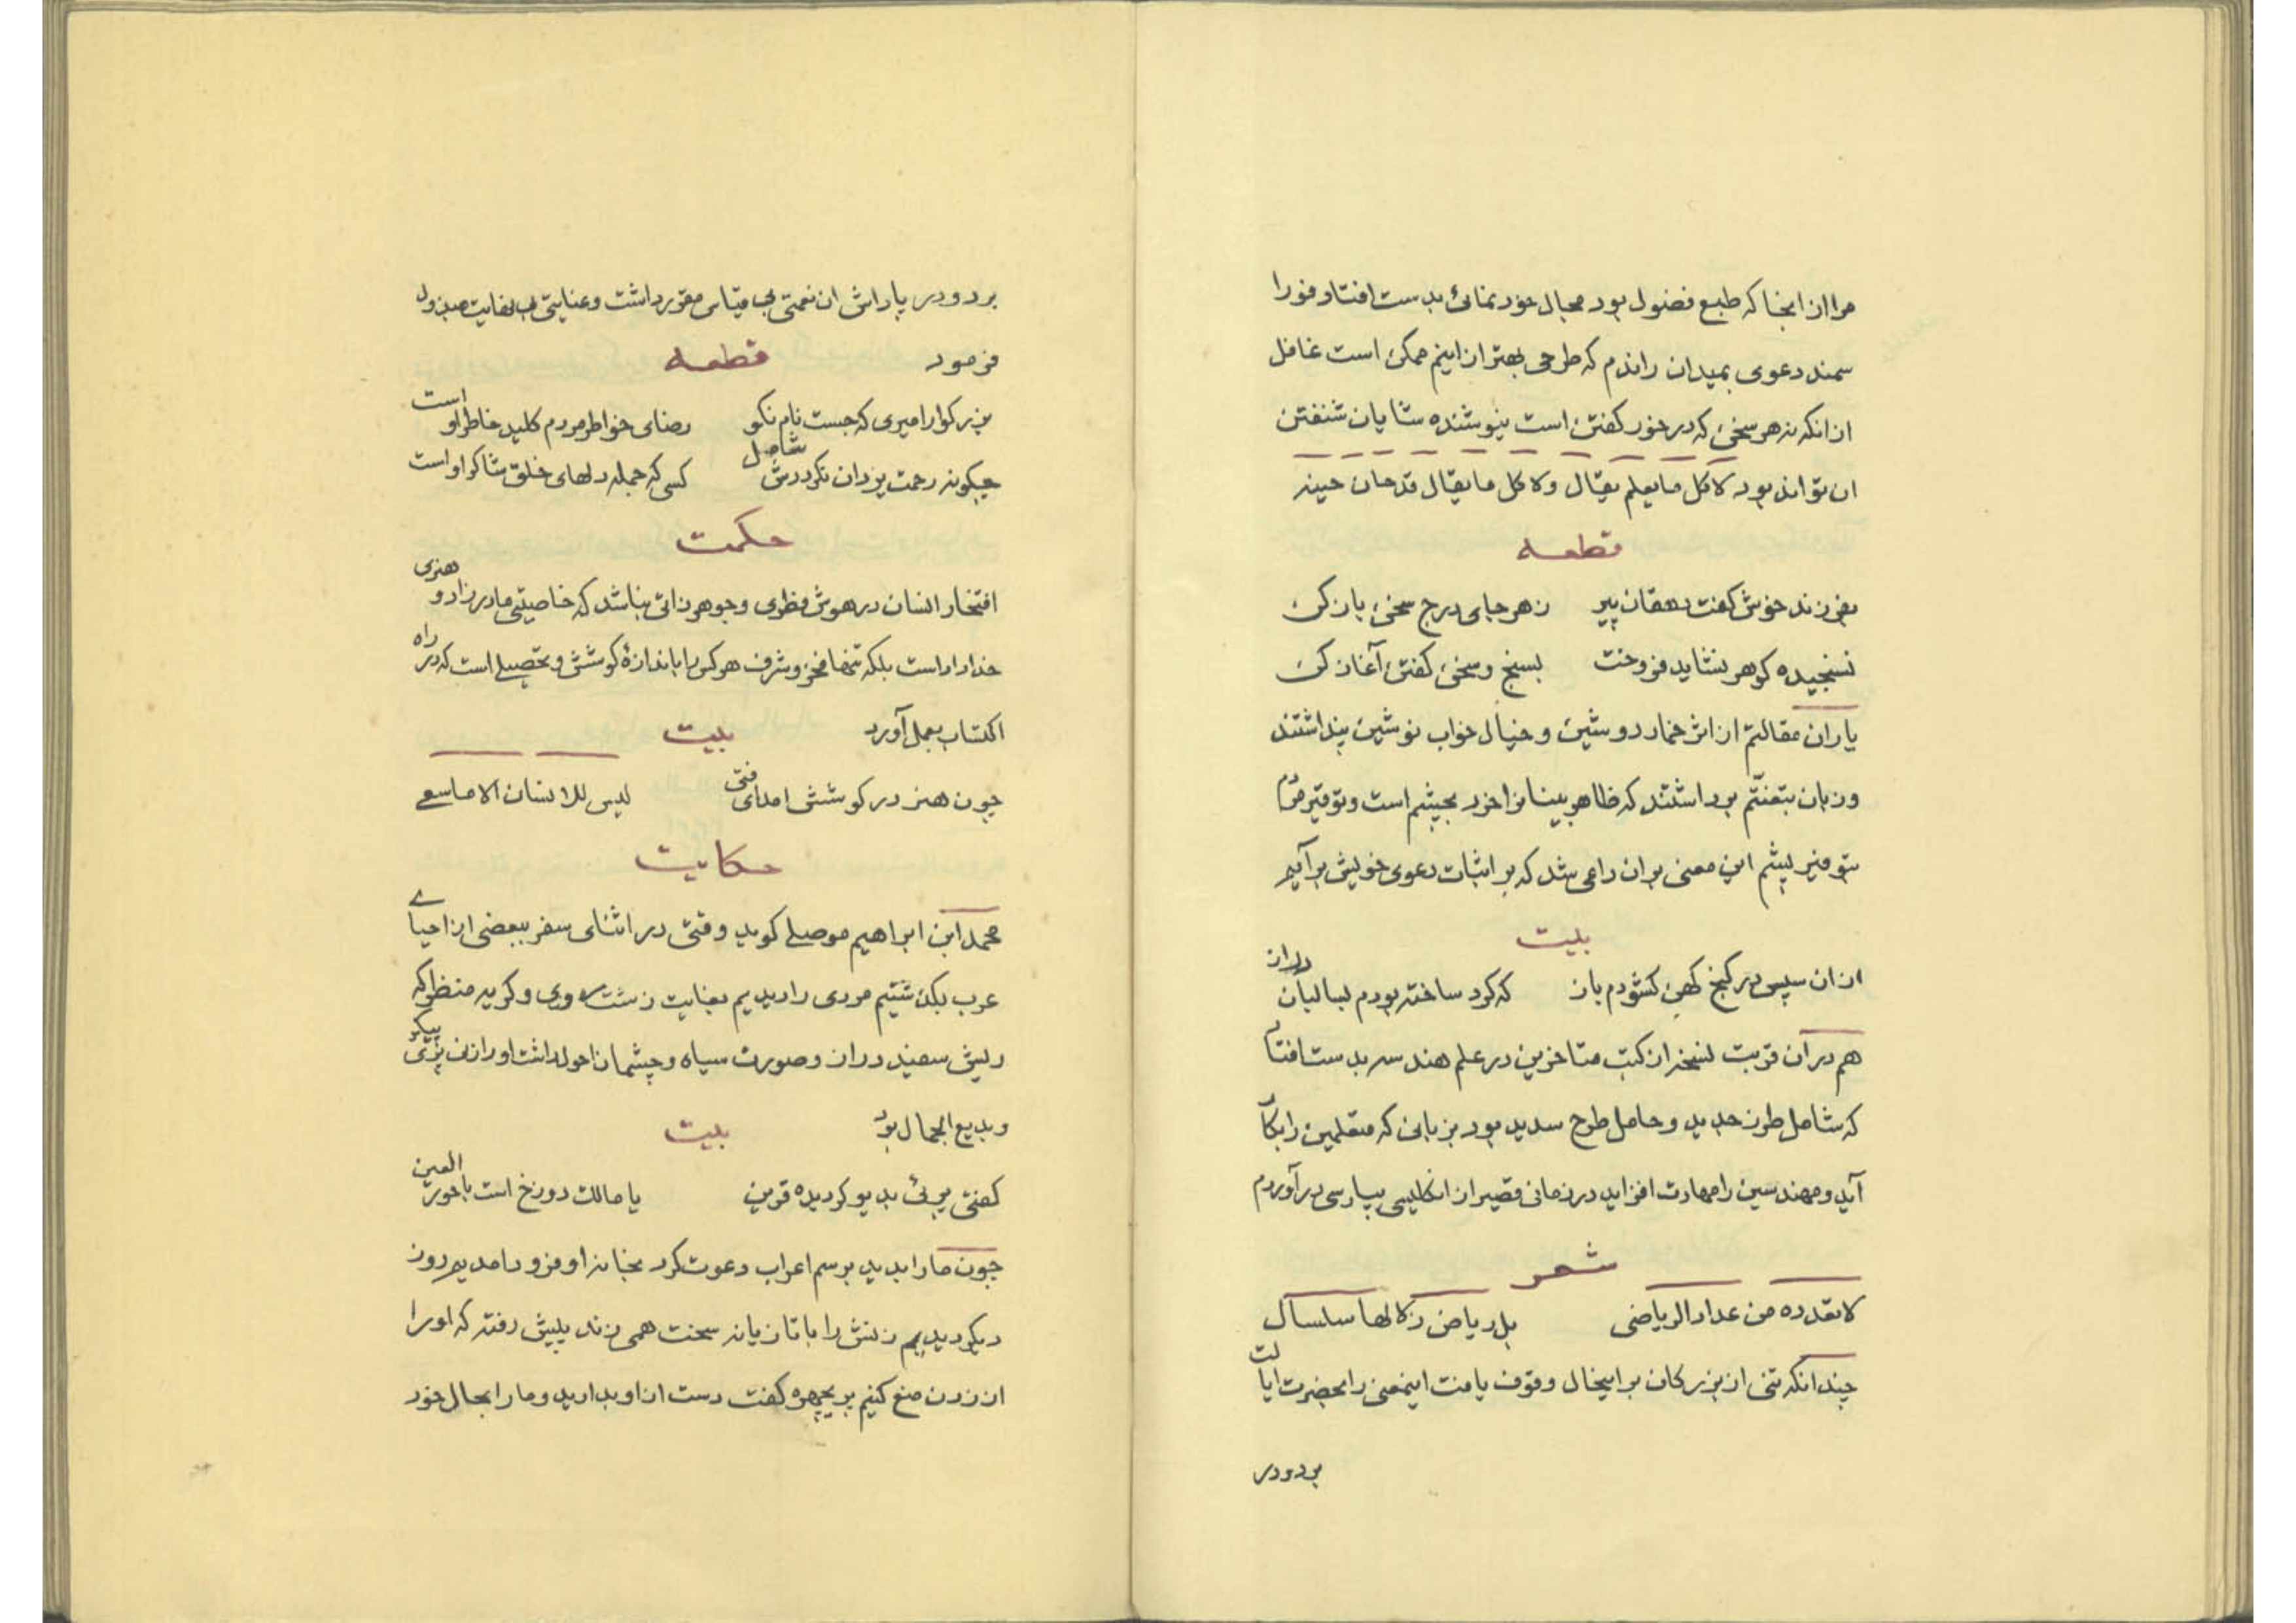 مرا از انجا که طبع فضول بود مجال خود نمائی بدست افتاد فورا
سمند دعوی بمیدان راندم که طرحی بهتر از اینم ممکن است غافل
از انکه نه هر سخن که در خور کفتن است نیوشنده شایان شنفتن
ان تواند بود لا کل ما یعلم یقال ولا کل ما یقال قد حان حینه
قطعه
بفرزند خوش کفت دهقان پیر    نه هر جای درج سخن باز کن
نسنجیده کوهر نشاید فروخت    بسنج و سخن کفتن آغاز کن
یاران مقالتم از اثر خمار دوشین و خیال خواب نوشین پنداشتند
و زبان بتعنتم برداشتند که ظاهر بینانرا خرد بچشم است و توقیر مردم
بتوفیر پشم این معنی بران داعی شد که بر اثبات دعوی خویش برآیم
بیت
از ان سپس در کنج کهن کشودم باز    که کرد ساخته بودم لسالیان دراز
هم در آن قربت نسخه از کتب متاخرین در علم هندسه بدست افتاد
که شامل طرز جدید و حامل طرح سدید بود بزبانی که متعلمین را بکار
آید و مهندسین را مهارت افزاید در زمانی قصیر از انکلیسی بپارسی در آوردم
شعر
لا تعدده من عداد الریاضی    بل ریاض زلالها سلسال
چندانکه تنی از بزرکان بر اینحال وقوف یافت اینمعنی را بحضرت ایالت
برد و در
برد و در پاداش ان نعمتی بی قیاس مقرر داشت و عنایتی بی نهایت مبذول
فرمود    قطعه
بزرکوار امیری که جست نام نکو    رضای خواطر مردم کلید خاطر او است
چکونه رحمت یزدان نکرددش شامل    کسی که جمله دلهای خلق شاکر او است
حکمت
افتخار انسان در هوش فطری و جوهر ذاتی نباشد که خاصیتی مادرزاد و هنری
خداداد است بلکه تنها فخر و شرف هر کس را باندازهٔ کوشش و تحصیلی است که در راه
اکتساب بعمل آورد    بیت
چون هنر در کوشش امد ای فتی    لیس للانسان الا ما سعی
حکایت
محمد ابن ابراهیم موصلی کوید وقتی در اثنای سفر ببعضی از احیای
عرب بکذشتیم مردی را دیدیم بغایت زشت روی و کریه منظر که
ریش سفید دراز و صورت سیاه و چشمان احول داشت او را زنی پری پیکر
و بدیع الجمال بود    بیت
کفتی پریئ بدیو کردیده قرین    یا مالک دوزخ است با حور العین
چون ما را بدید برسم اعراب دعوت کرد بخانه او فرود امدیم روز
دیکر دیدیم زنش را با تازیانه سخت همی زند پیش رفته که او را
از زدن منع کنیم پریچهره کفت دست از او بدارید و ما را بحال خود